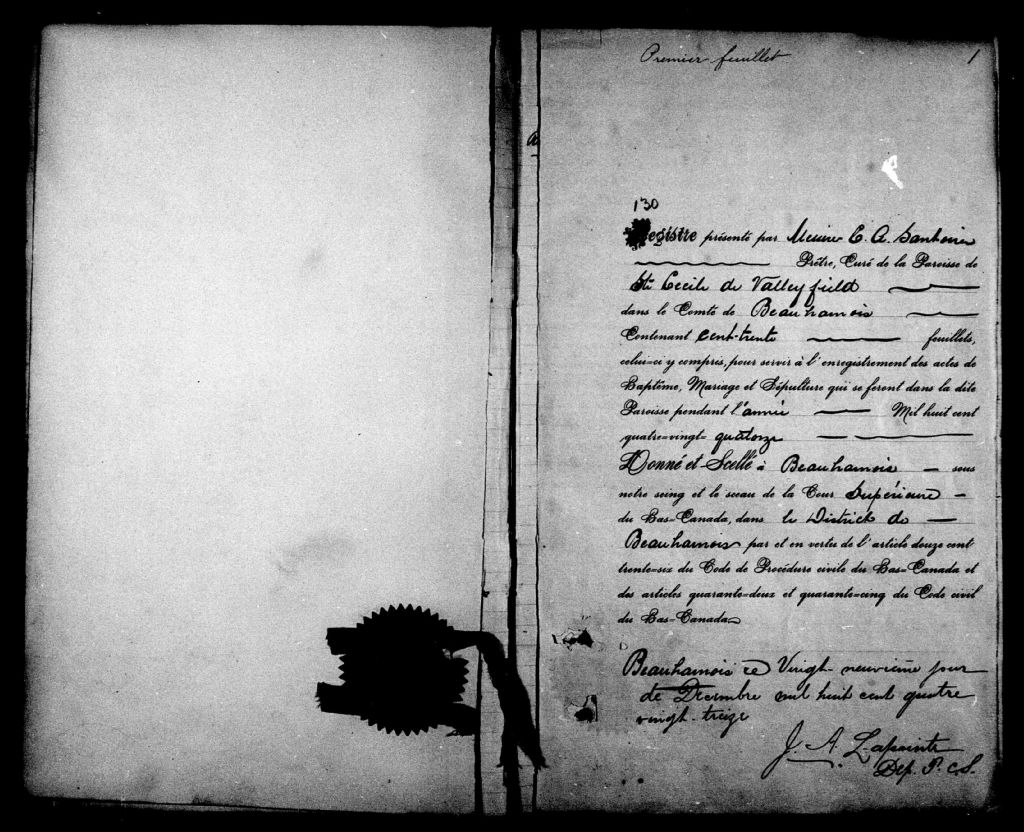 Premier feuillet 1
a
130
Registre présenté par Messire E. A.
Prêtre, Curé de la Paroisse de
Ste Cecile de Valleyfield
dans le Comté de Beauharnois
Contenant cent-trente feuillets,
celui-ci y compris, pour servir à l'enregistrement des actes de
Baptême, Mariage et Sépulture qui se feront dans la dite
Paroisse pendant l'année Mil huit cent
quatre-vingt-quatorze
Donné et Scellé à Beauharnois — sous
notre seing et le sceau de la Cour Supérieure —
du Bas-Canada, dans le District de —
Beauharnois par et en vertu de l'article douze cent
trente-six du Code de Procédure civile du Bas-Canada et
des articles quarante-deux et quarante-cinq du Code civil
du Bas-Canada
Beauharnois ce Vingt-neuvième jour
de Décembre mil huit cent quatre
vingt-treize
J. A. Lapointe
Dep. P.C.S.